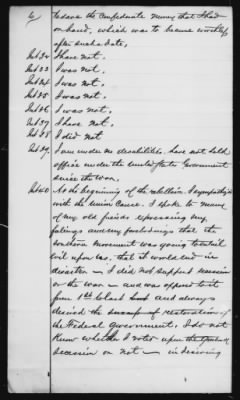 6/ to save the Confederate money that I had
on hand, which was to become worthless
after such a date,
Int 32 I have not.
Int 33 I was not.
Int 34 I was not.
Int 35 I was not.
Int 36 I was not.
Int 37 I have not.
Int 38 I did not
Int 39. I am under no disabilities. have not held
office under the United States Government
since the war.
Int 40 At the beginning of the rebellion I sympathized
with the Union Cause. I spoke to many
of my old friends expressing my
feelings and my forebodings that the
southern movement was going to entail
evil upon us. that it would end in
disaster — I did not support secession
or the war — and was opposed to it
from 1st to last and always
desired the success of restoration of
the Federal Government. I do not
know whether I voted upon the
secession or not —